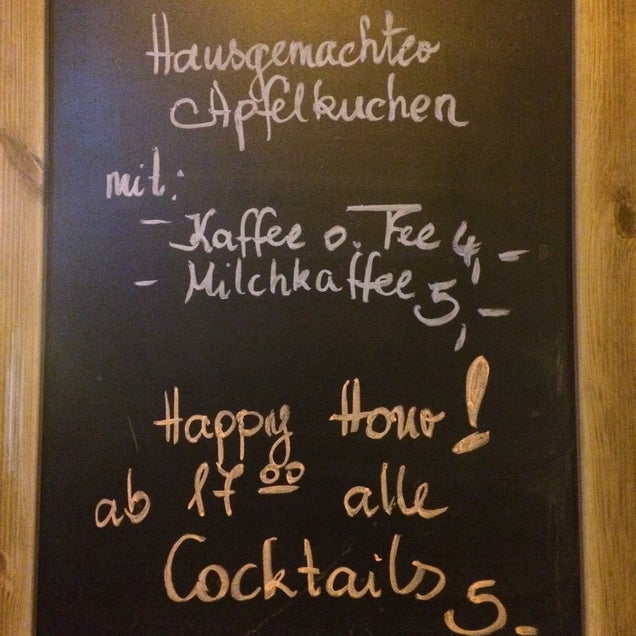 Hausgemachter
Apfelkuchen
mit:
- Kaffee o. Tee 4,-
- Milchkaffee 5,-
Happy Hour!
ab 17⁰⁰ alle
Cocktails 5.-